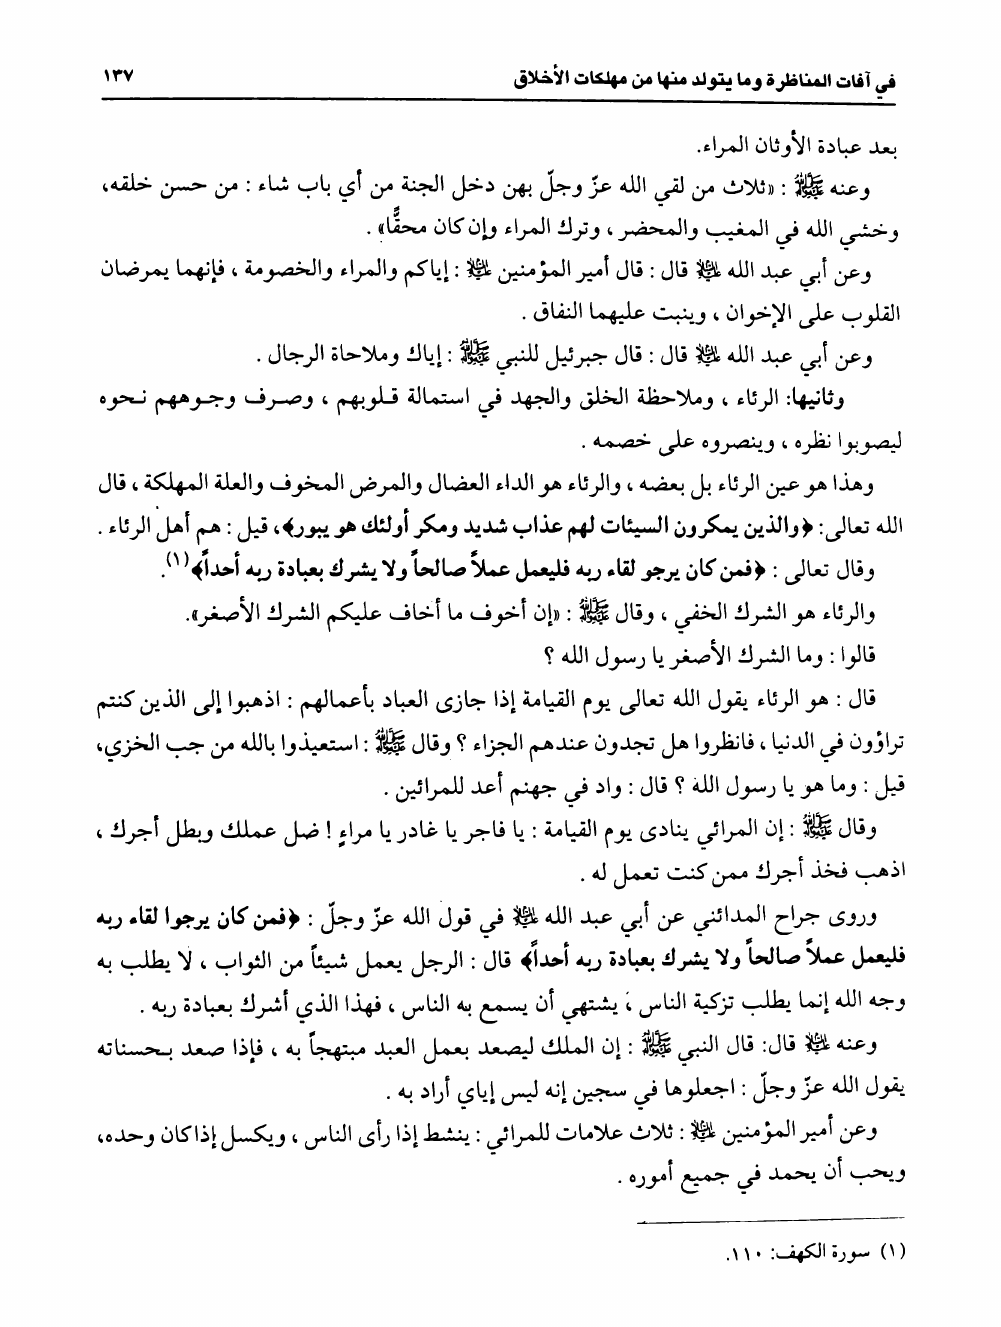 في آفات المناظرة وما يتولد منها من مهلكات الأخلاق ١٣٧
بعد عبادة الأوثان المراء.
وعنه ﷺ : «ثلاث من لقي الله عزّ وجلّ بهن دخل الجنة من أي باب شاء : من حسن خلقه،
وخشي الله في المغيب والمحضر ، وترك المراء وإن كان محقًّا» .
وعن أبي عبد الله عليه السلام قال : قال أمير المؤمنين عليه السلام : إياكم والمراء والخصومة ، فإنهما يمرضان
القلوب على الإخوان ، وينبت عليهما النفاق .
وعن أبي عبد الله عليه السلام قال : قال جبرئيل للنبي ﷺ : إياك وملاحاة الرجال .
وثانيها: الرئاء ، وملاحظة الخلق والجهد في استمالة قلوبهم ، وصرف وجوههم نحوه
ليصوبوا نظره ، وينصروه على خصمه .
وهذا هو عين الرئاء بل بعضه ، والرئاء هو الداء العضال والمرض المخوف والعلة المهلكة ، قال
الله تعالى: ﴿والذين يمكرون السيئات لهم عذاب شديد ومكر أولئك هو يبور﴾، قيل : هم أهل الرئاء .
وقال تعالى : ﴿فمن كان يرجو لقاء ربه فليعمل عملاً صالحاً ولا يشرك بعبادة ربه أحداً﴾(١).
والرئاء هو الشرك الخفي ، وقال ﷺ : «إن أخوف ما أخاف عليكم الشرك الأصغر».
قالوا : وما الشرك الأصغر يا رسول الله ؟
قال : هو الرئاء يقول الله تعالى يوم القيامة إذا جازى العباد بأعمالهم : اذهبوا إلى الذين كنتم
تراؤون في الدنيا ، فانظروا هل تجدون عندهم الجزاء ؟ وقال ﷺ : استعيذوا بالله من جب الخزي،
قيل : وما هو يا رسول الله ؟ قال : واد في جهنم أعد للمرائين .
وقال ﷺ : إن المرائي ينادى يوم القيامة : يا فاجر يا غادر يا مراءٍ ! ضل عملك وبطل أجرك ،
اذهب فخذ أجرك ممن كنت تعمل له .
وروى جراح المدائني عن أبي عبد الله عليه السلام في قول الله عزّ وجلّ : ﴿فمن كان يرجوا لقاء ربه
فليعمل عملاً صالحاً ولا يشرك بعبادة ربه أحداً﴾ قال : الرجل يعمل شيئاً من الثواب ، لا يطلب به
وجه الله إنما يطلب تزكية الناس ، يشتهي أن يسمع به الناس ، فهذا الذي أشرك بعبادة ربه .
وعنه عليه السلام قال: قال النبي ﷺ : إن الملك ليصعد بعمل العبد مبتهجاً به ، فإذا صعد بحسناته
يقول الله عزّ وجلّ : اجعلوها في سجين إنه ليس إياي أراد به .
وعن أمير المؤمنين عليه السلام : ثلاث علامات للمرائي : ينشط إذا رأى الناس ، ويكسل إذا كان وحده،
ويحب أن يحمد في جميع أموره .
(١) سورة الكهف: ١١٠.